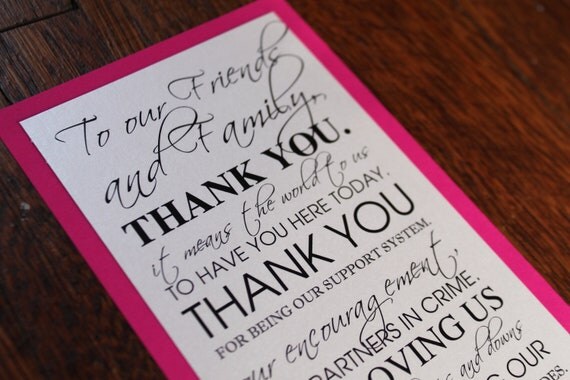 To our Friends
and Family,
THANK YOU.
it means the world to us
TO HAVE YOU HERE TODAY.
THANK YOU
FOR BEING OUR SUPPORT SYSTEM.
our encouragement,
PARTNERS IN CRIME.
LOVING US
and downs
OUR